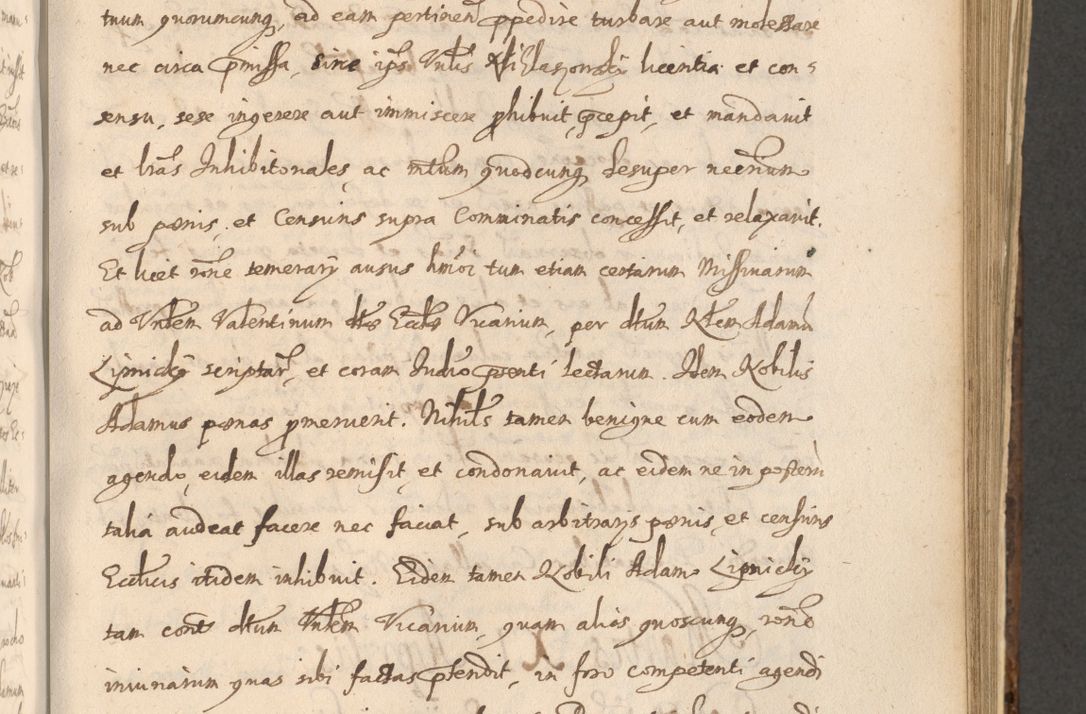 tuum quorumcunq, ad eam pertinen ppedire turbare aut molestare
nec circa pmissa, sine ips Vnlis licentia et con-
sensu, sese ingerere aut immiscere phibuit, pcepit, et mandauit
et lras Inhibitoriales, ac mltum quodcunq desuper necrium
sub pœnis, et Censuris supra Comminatis concessit, et relaxauit.
Et licet rone temerarÿ ausus hmoi tum etiam certarum Missiuarum
ad Vnlem Valentinum dtæ Eccliæ Vicarium, per dtum Nlem Adamū
Lipnickÿ scriptar, et coram Iudio pnti lectarum. Idem Nobilis
Adamus pœnas pmeruerit. Nihils tamen benigne cum eodem
agendo, eidem illas remisit, et condonauit, ac eidem ne in posterū
talia audeat facere nec faciat, sub arbitrarÿs pœnis, et censuris
Ecclicis itidem inhibuit. Eidem tamen Nobili Adamo Lipnickÿ
tam cont dtum Vnlem Vicarium, quam alios quoscunq, rone
iniuriarum quas sibi factas ptendit, in foro competenti agendi